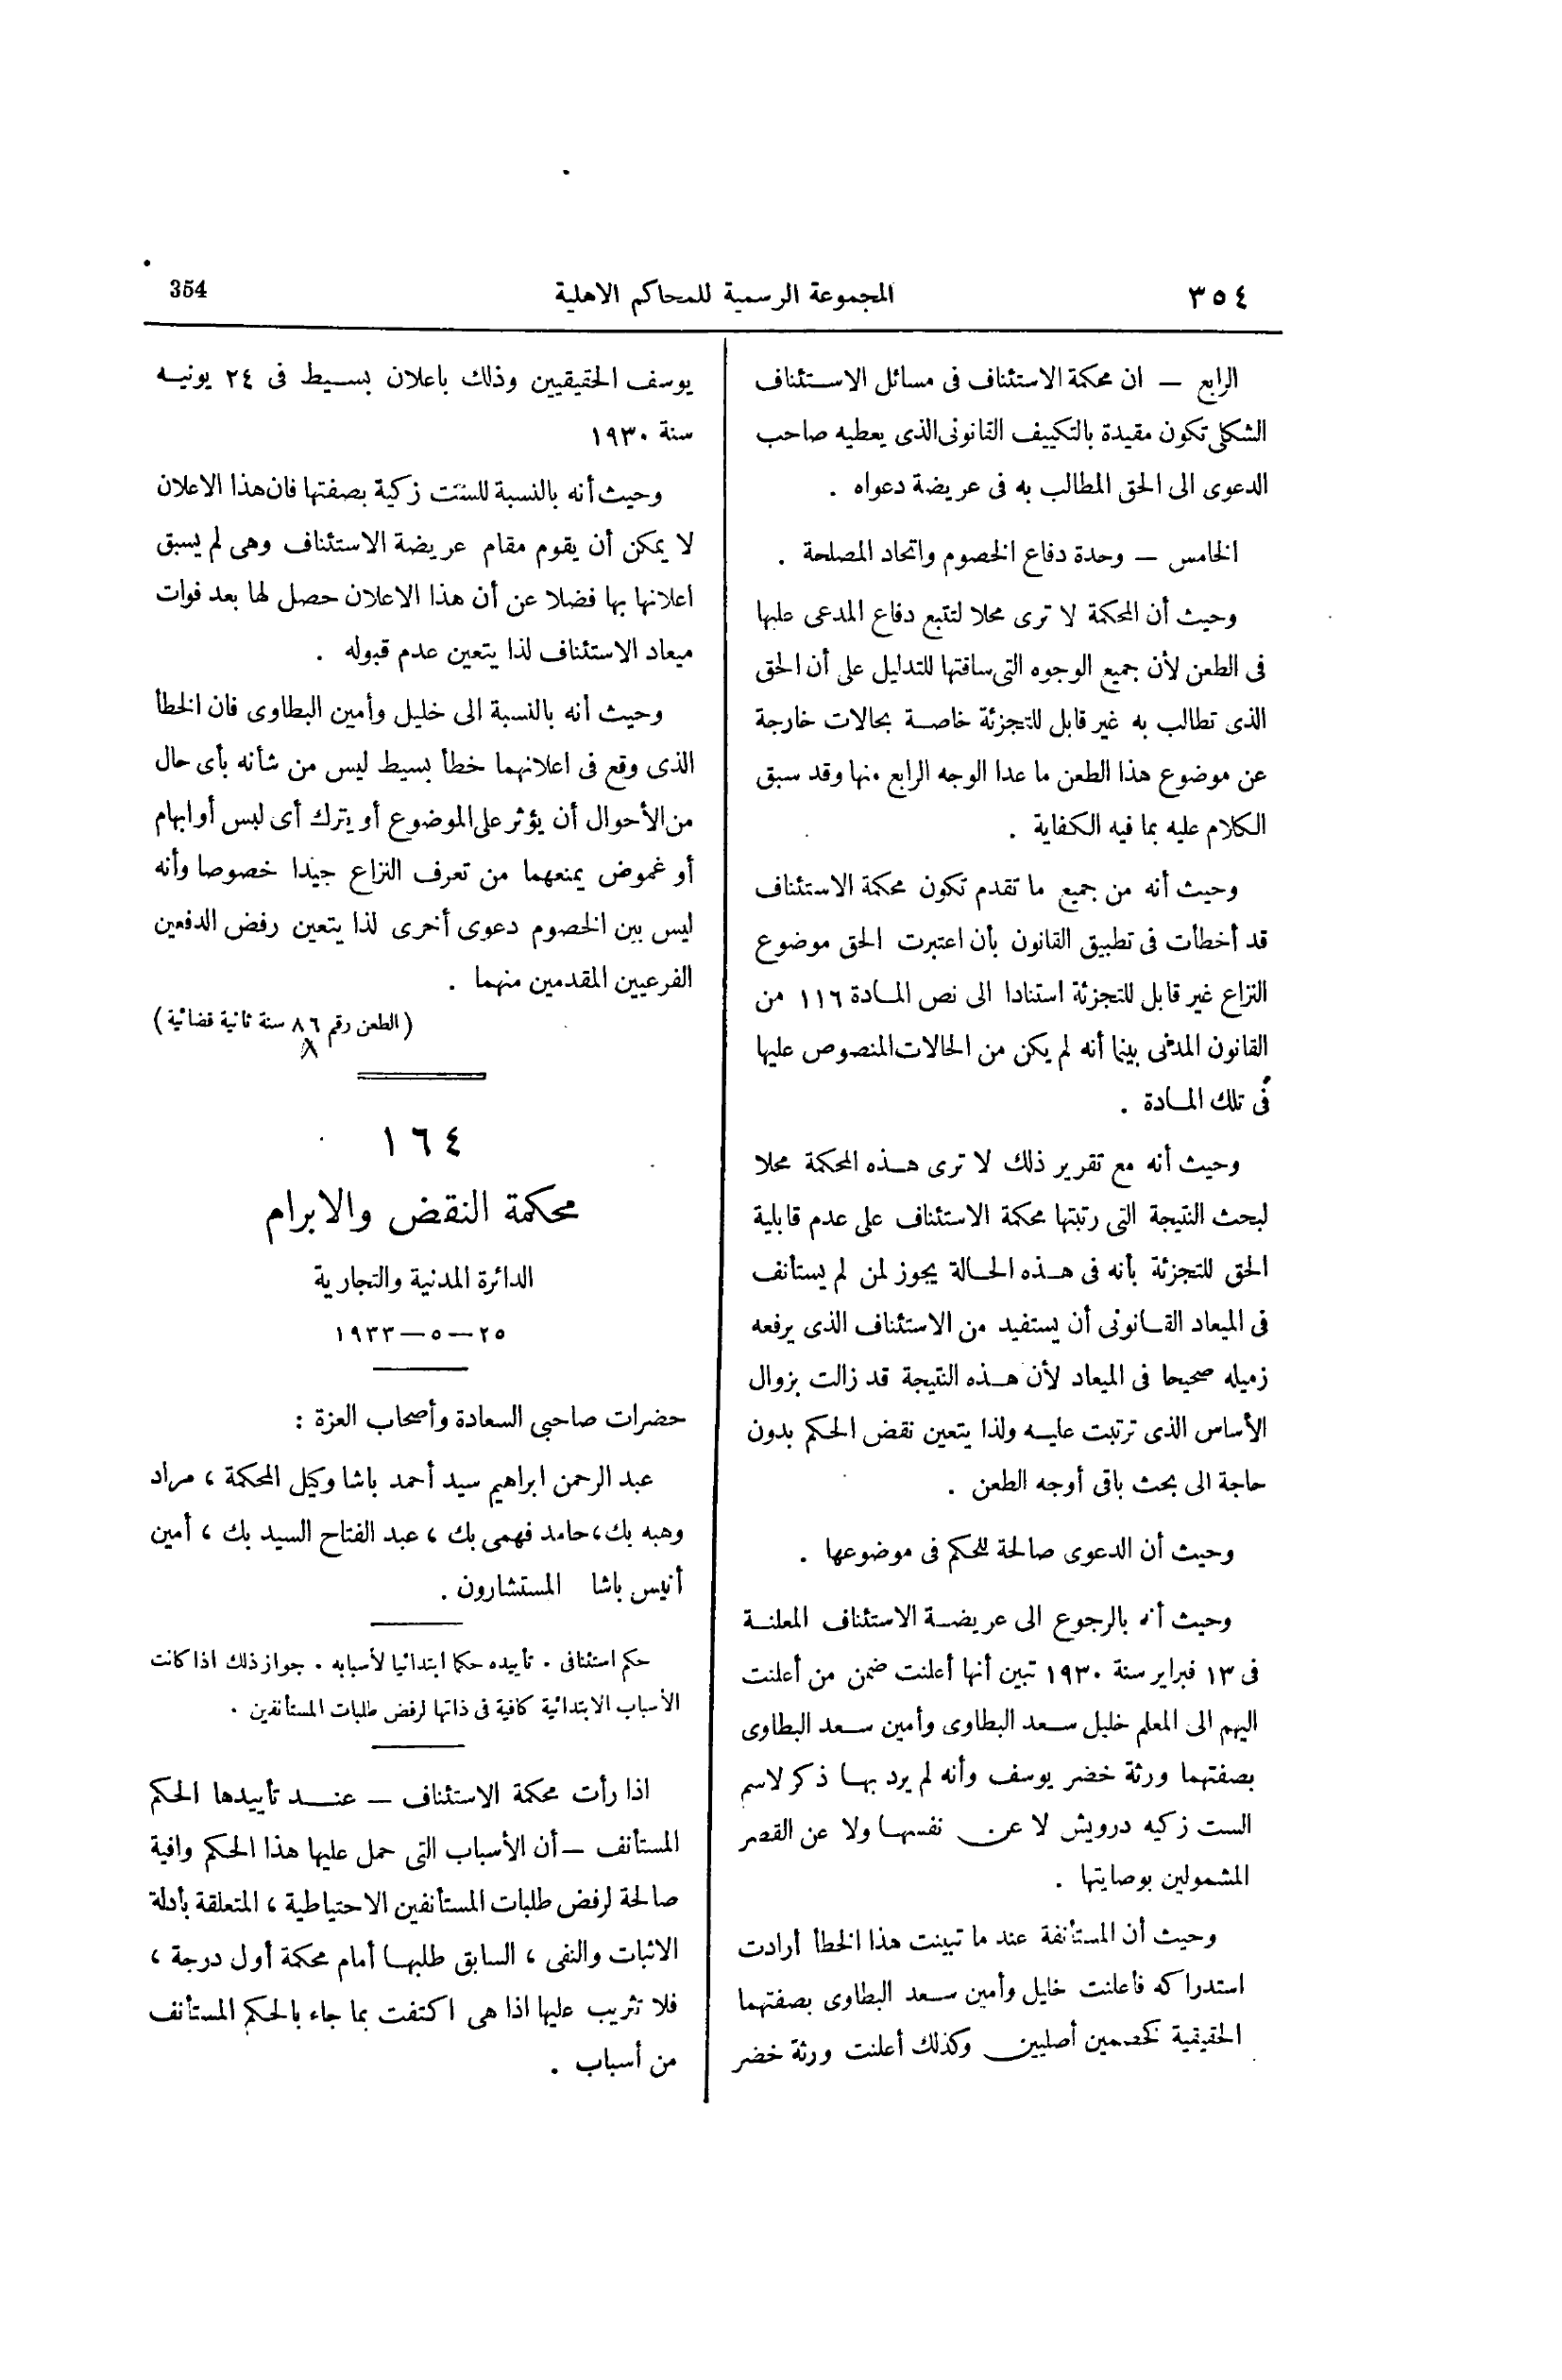 ٣٥٤
المجموعة الرسمية للمحاكم الاهلية
354
الرابع — ان محكمة الاستئناف فى مسائل الاستئناف
الشكلى تكون مقيدة بالتكييف القانونى الذى يعطيه صاحب
الدعوى الى الحق المطالب به فى عريضة دعواه .
الخامس — وحدة دفاع الخصوم واتحاد المصلحة .
وحيث أن المحكمة لا ترى محلا لتتبع دفاع المدعى عليها
فى الطعن لأن جميع الوجوه التى ساقتها للتدليل على أن الحق
الذى تطالب به غير قابل للتجزئة خاصة بحالات خارجة
عن موضوع هذا الطعن ما عدا الوجه الرابع منها وقد سبق
الكلام عليه بما فيه الكفاية .
وحيث أنه من جميع ما تقدم تكون محكمة الاستئناف
قد أخطأت فى تطبيق القانون بأن اعتبرت الحق موضوع
النزاع غير قابل للتجزئة استنادا الى نص المادة ١١٦ من
القانون المدنى بينما أنه لم يكن من الحالات المنصوص عليها
فى تلك المادة .
وحيث أنه مع تقرير ذلك لا ترى هذه المحكمة محلا
لبحث النتيجة التى رتبتها محكمة الاستئناف على عدم قابلية
الحق للتجزئة بأنه فى هذه الحالة يجوز لمن لم يستأنف
فى الميعاد القانونى أن يستفيد من الاستئناف الذى يرفعه
زميله صحيحا فى الميعاد لأن هذه النتيجة قد زالت بزوال
الأساس الذى ترتبت عليه ولذا يتعين نقض الحكم بدون
حاجة الى بحث باقى أوجه الطعن .
وحيث أن الدعوى صالحة للحكم فى موضوعها .
وحيث أنه بالرجوع الى عريضة الاستئناف المعلنة
فى ١٣ فبراير سنة ١٩٣٠ تبين أنها أعلنت ضمن من أعلنت
اليهم الى المعلم خليل سعد البطاوى وأمين سعد البطاوى
بصفتهما ورثة خضر يوسف وأنه لم يرد بها ذكر لاسم
الست زكيه درويش لا عن نفسها ولا عن القصر
المشمولين بوصايتها .
وحيث أن المستأنفة عند ما تبينت هذا الخطأ أرادت
استدراكه فأعلنت خليل وأمين سعد البطاوى بصفتهما
الحقيقية كخصمين أصليين وكذلك أعلنت ورثة خضر
يوسف الحقيقيين وذلك باعلان بسيط فى ٢٤ يونيه
سنة ١٩٣٠
وحيث أنه بالنسبة للست زكية بصفتها فان هذا الاعلان
لا يمكن أن يقوم مقام عريضة الاستئناف وهى لم يسبق
اعلانها بها فضلا عن أن هذا الاعلان حصل لها بعد فوات
ميعاد الاستئناف لذا يتعين عدم قبوله .
وحيث أنه بالنسبة الى خليل وأمين البطاوى فان الخطأ
الذى وقع فى اعلانهما خطأ بسيط ليس من شأنه بأى حال
من الأحوال أن يؤثر على الموضوع أو يترك أى لبس أو ابهام
أو غموض يمنعهما من تعرف النزاع جيدا خصوصا وأنه
ليس بين الخصوم دعوى أخرى لذا يتعين رفض الدفعين
الفرعيين المقدمين منهما .
(الطعن رقم ٨٦ سنة ثانية قضائية)
٨
١٦٤
محكمة النقض والابرام
الدائرة المدنية والتجارية
٢٥—٥—١٩٣٣
حضرات صاحبى السعادة وأصحاب العزة :
عبد الرحمن ابراهيم سيد أحمد باشا وكيل المحكمة ، مراد
وهبه بك ، حامد فهمى بك ، عبد الفتاح السيد بك ، أمين
أنيس باشا المستشارون .
حكم استئنافى . تأييده حكما ابتدائيا لأسبابه . جواز ذلك اذا كانت
الأسباب الابتدائية كافية فى ذاتها لرفض طلبات المستأنفين .
اذا رأت محكمة الاستئناف — عند تأييدها الحكم
المستأنف — أن الأسباب التى حمل عليها هذا الحكم وافية
صالحة لرفض طلبات المستأنفين الاحتياطية ، المتعلقة بأدلة
الاثبات والنفى ، السابق طلبها أمام محكمة أول درجة ،
فلا تثريب عليها اذا هى اكتفت بما جاء بالحكم المستأنف
من أسباب .